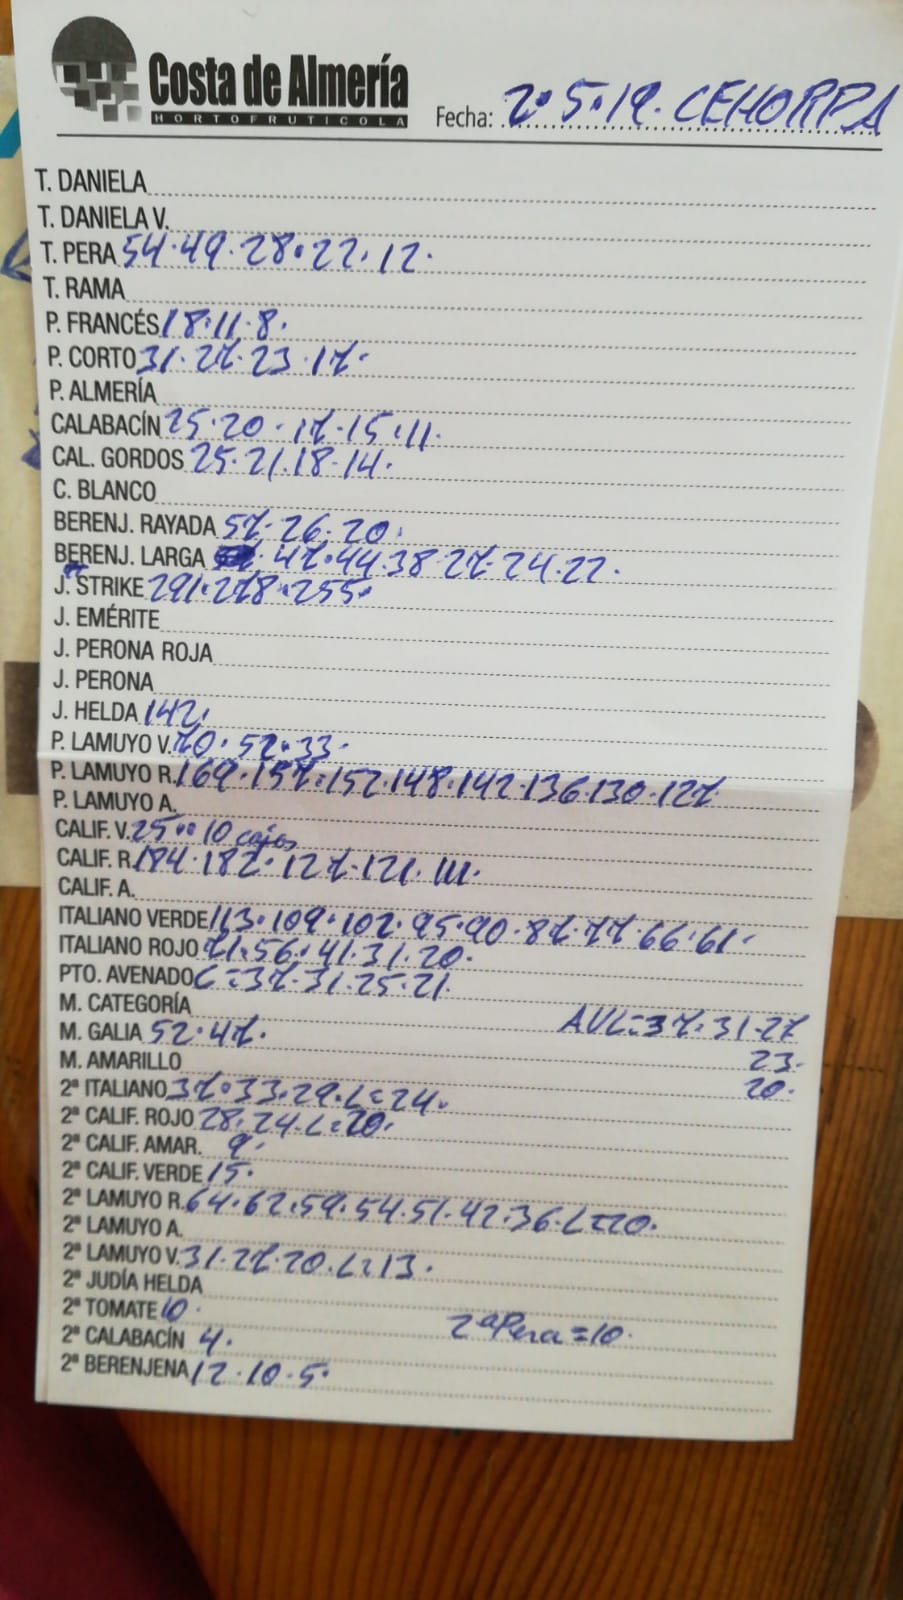 Costa de Almería
HORTOFRUTICOLA
Fecha: 2·5·19. CEHORPA
T. DANIELA
T. DANIELA V.
T. PERA 54·49·28·22·12.
T. RAMA
P. FRANCÉS 18·11·8.
P. CORTO 31·27·23·17·
P. ALMERÍA
CALABACÍN 25·20·17·15·11·
CAL. GORDOS 25·21·18·14.
C. BLANCO
BERENJ. RAYADA 57·26·20.
BERENJ. LARGA 47·44·38·27·24·22·
J. STRIKE 291·278·255·
J. EMÉRITE
J. PERONA ROJA
J. PERONA
J. HELDA 142.
P. LAMUYO V. 70·52·33·
P. LAMUYO R. 169·157·152·148·142·136·130·127
P. LAMUYO A.
CALIF. V. 25··10 cajas
CALIF. R. 184·182·127·121·111·
CALIF. A.
ITALIANO VERDE 113·109·102·95·90·87·77·66·61·
ITALIANO ROJO 71·56·41·31·20·
PTO. AVENADO C=37·31·25·21.
M. CATEGORÍA
AVL=37·31·27
M. GALIA 52·47·
23·
M. AMARILLO
20·
2ª ITALIANO 37·33·29·L=24·
2ª CALIF. ROJO 28·24·L=20·
2ª CALIF. AMAR. 9·
2ª CALIF. VERDE 15·
2ª LAMUYO R. 64·62·59·54·51·42·36·L=20·
2ª LAMUYO A.
2ª LAMUYO V. 31·27·20·L=13·
2ª JUDÍA HELDA
2ª TOMATE 10·
2ª Pera=10·
2ª CALABACÍN 4·
2ª BERENJENA 12·10·5·